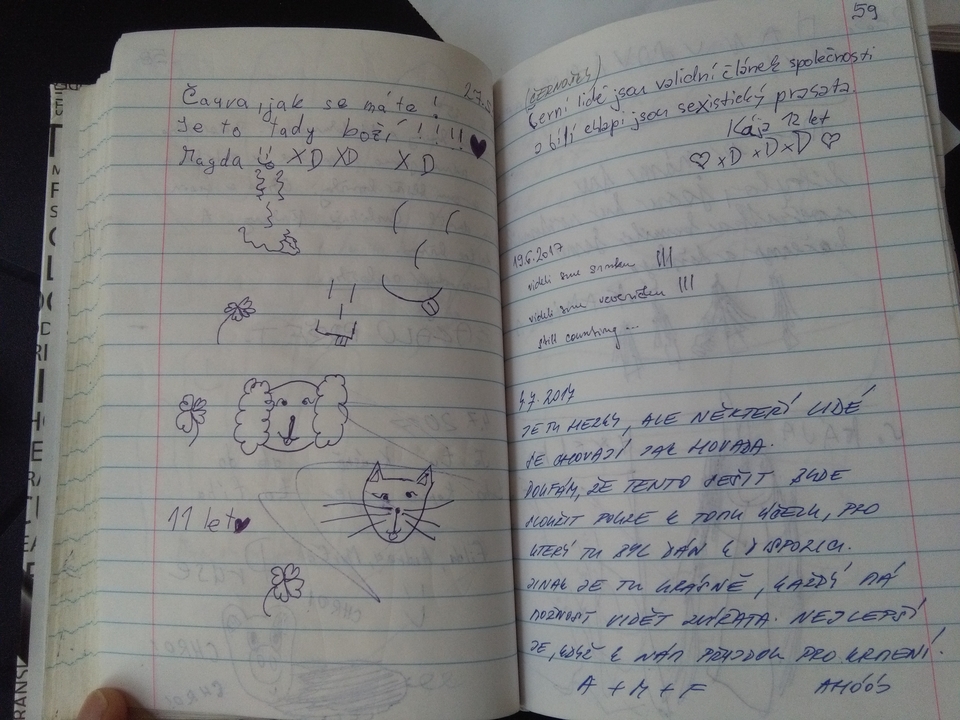 27.5
Čauva, jak se máte!
Je to tady boží!!!!
Magda !! XD XD XD
11 let
59
(ČERNOŠKY)
Černí lidé jsou validní článek společnosti
a bílí chlapi jsou sexistický prasata.
Kája 12 let
xD xDxD
19.6.2017
viděli sme srnku !!!
viděli sme veveričku !!!
still counting...
4.7. 2017
JE TU HEZKY, ALE NĚKTEŘÍ LIDÉ
SE CHOVAJÍ JAK HOVADA.
DOUFÁM, ŽE TENTO SEŠIT BUDE
SLOUŽIT POUZE K TOMU ÚČELU, PRO
KTERÝ TU BYL DÁN K DISPOZICI.
JINAK JE TU KRÁSNĚ, KAŽDÝ MÁ
MOŽNOST VIDĚT ZVÍŘATA. NEJLEPŠÍ
JE, KDYŽ K NÁM PŘIJDOU PRO KRMENÍ.
A + M + F AHÓÓJ